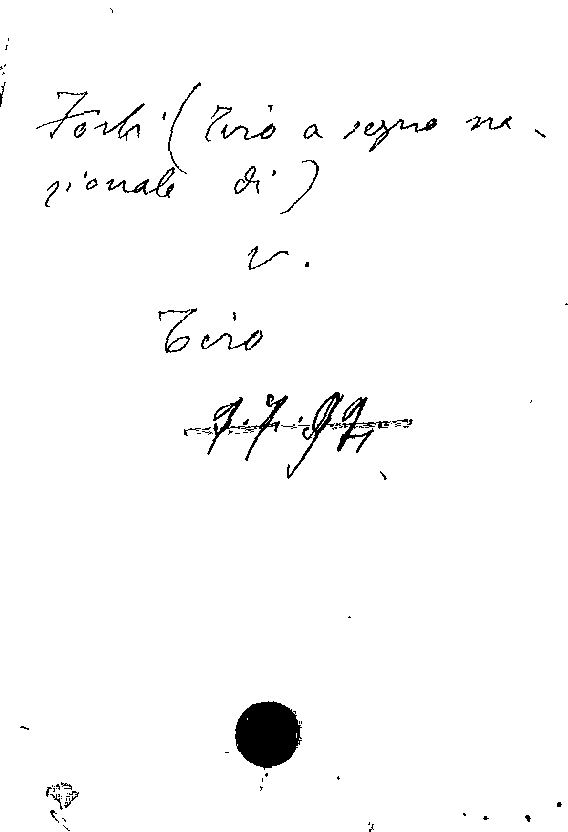 Forlì (Tiro a segno na-
zionale di)
v.
Tiro